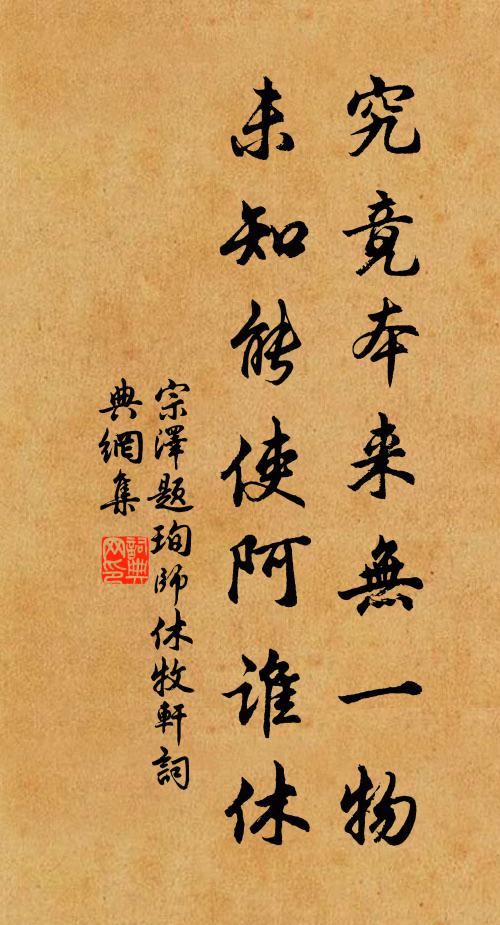 究竟本来無一物
未知能使阿谁休
宗澤題珣師休牧軒詞
典網集
詞典
网印